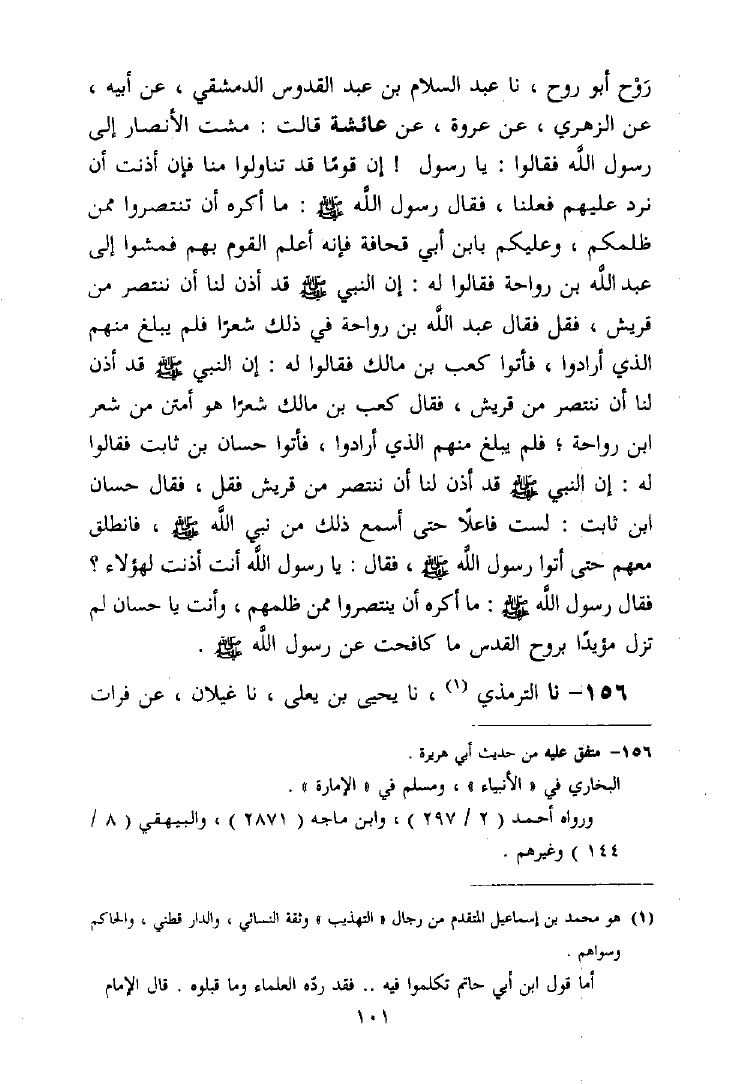 رَوْح أبو روح ، نا عبد السلام بن عبد القدوس الدمشقي ، عن أبيه ،
عن الزهري ، عن عروة ، عن عائشة قالت : مشت الأنصار إلى
رسول اللَّه فقالوا : يا رسول ! إن قومًا قد تناولوا منا فإن أذنت أن
نرد عليهم فعلنا ، فقال رسول اللَّه ﷺ : ما أكره أن تنتصروا ممن
ظلمكم ، وعليكم بابن أبي قحافة فإنه أعلم القوم بهم فمشوا إلى
عبد اللَّه بن رواحة فقالوا له : إن النبي ﷺ قد أذن لنا أن ننتصر من
قريش ، فقل فقال عبد اللَّه بن رواحة في ذلك شعرًا فلم يبلغ منهم
الذي أرادوا ، فأتوا كعب بن مالك فقالوا له : إن النبي ﷺ قد أذن
لنا أن ننتصر من قريش ، فقال كعب بن مالك شعرًا هو أمتن من شعر
ابن رواحة ؛ فلم يبلغ منهم الذي أرادوا ، فأتوا حسان بن ثابت فقالوا
له : إن النبي ﷺ قد أذن لنا أن ننتصر من قريش فقل ، فقال حسان
ابن ثابت : لست فاعلًا حتى أسمع ذلك من نبي اللَّه ﷺ ، فانطلق
معهم حتى أتوا رسول اللَّه ﷺ ، فقال : يا رسول اللَّه أنت أذنت لهؤلاء ؟
فقال رسول اللَّه ﷺ : ما أكره أن ينتصروا ممن ظلمهم ، وأنت يا حسان لم
تزل مؤيدًا بروح القدس ما كافحت عن رسول اللَّه ﷺ .
١٥٦- نا الترمذي (١) ، نا يحيى بن يعلى ، نا غيلان ، عن فرات
١٥٦- متفق عليه من حديث أبي هريرة .
البخاري في « الأنبياء » ، ومسلم في « الإمارة » .
ورواه أحمد ( ٢ / ٢٩٧ ) ، وابن ماجه ( ٢٨٧١ ) ، والبيهقي ( ٨ /
١٤٤ ) وغيرهم .
(١) هو محمد بن إسماعيل المتقدم من رجال « التهذيب » وثقة النسائي ، والدار قطني ، والحاكم
وسواهم .
أما قول ابن أبي حاتم تكلموا فيه .. فقد ردّه العلماء وما قبلوه . قال الإمام
١٠١